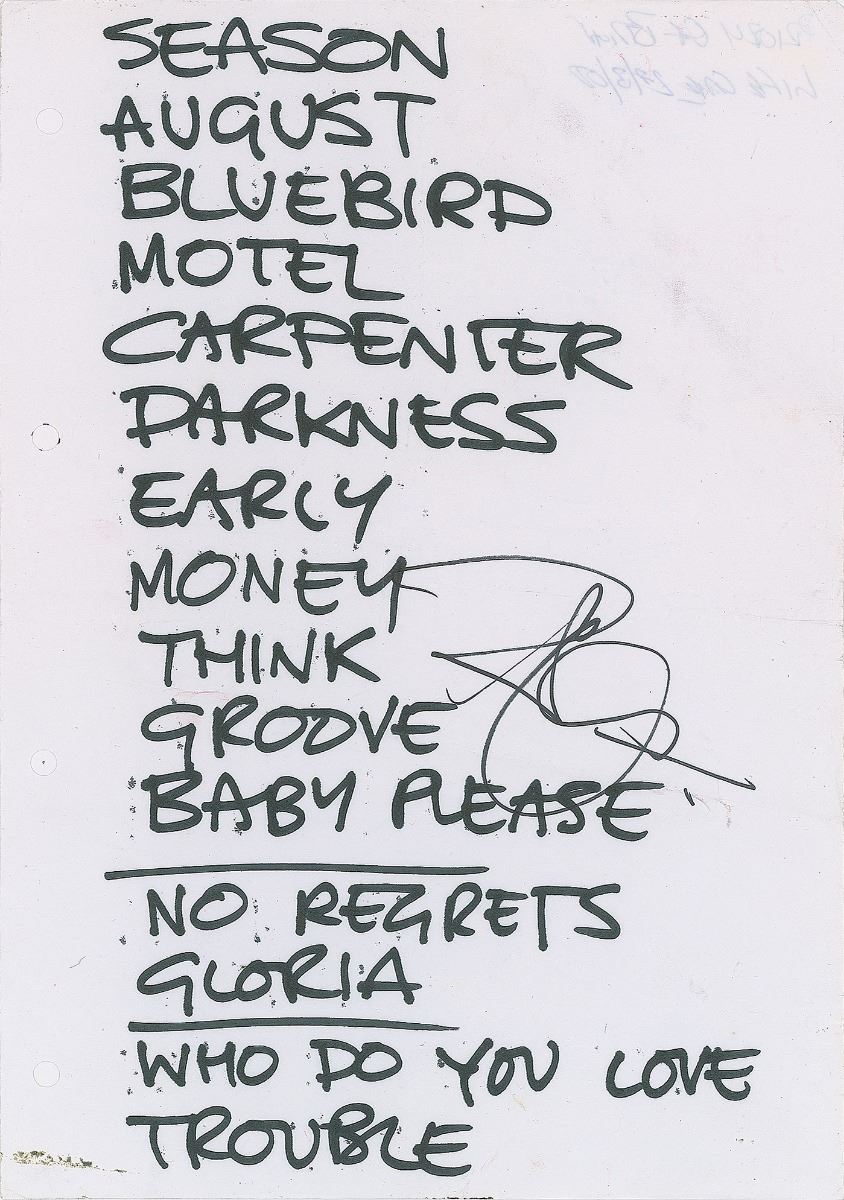 SEASON
AUGUST
BLUEBIRD
MOTEL
CARPENTER
DARKNESS
EARLY
MONEY
THINK
GROOVE
BABY PLEASE
NO REGRETS
GLORIA
WHO DO YOU LOVE
TROUBLE